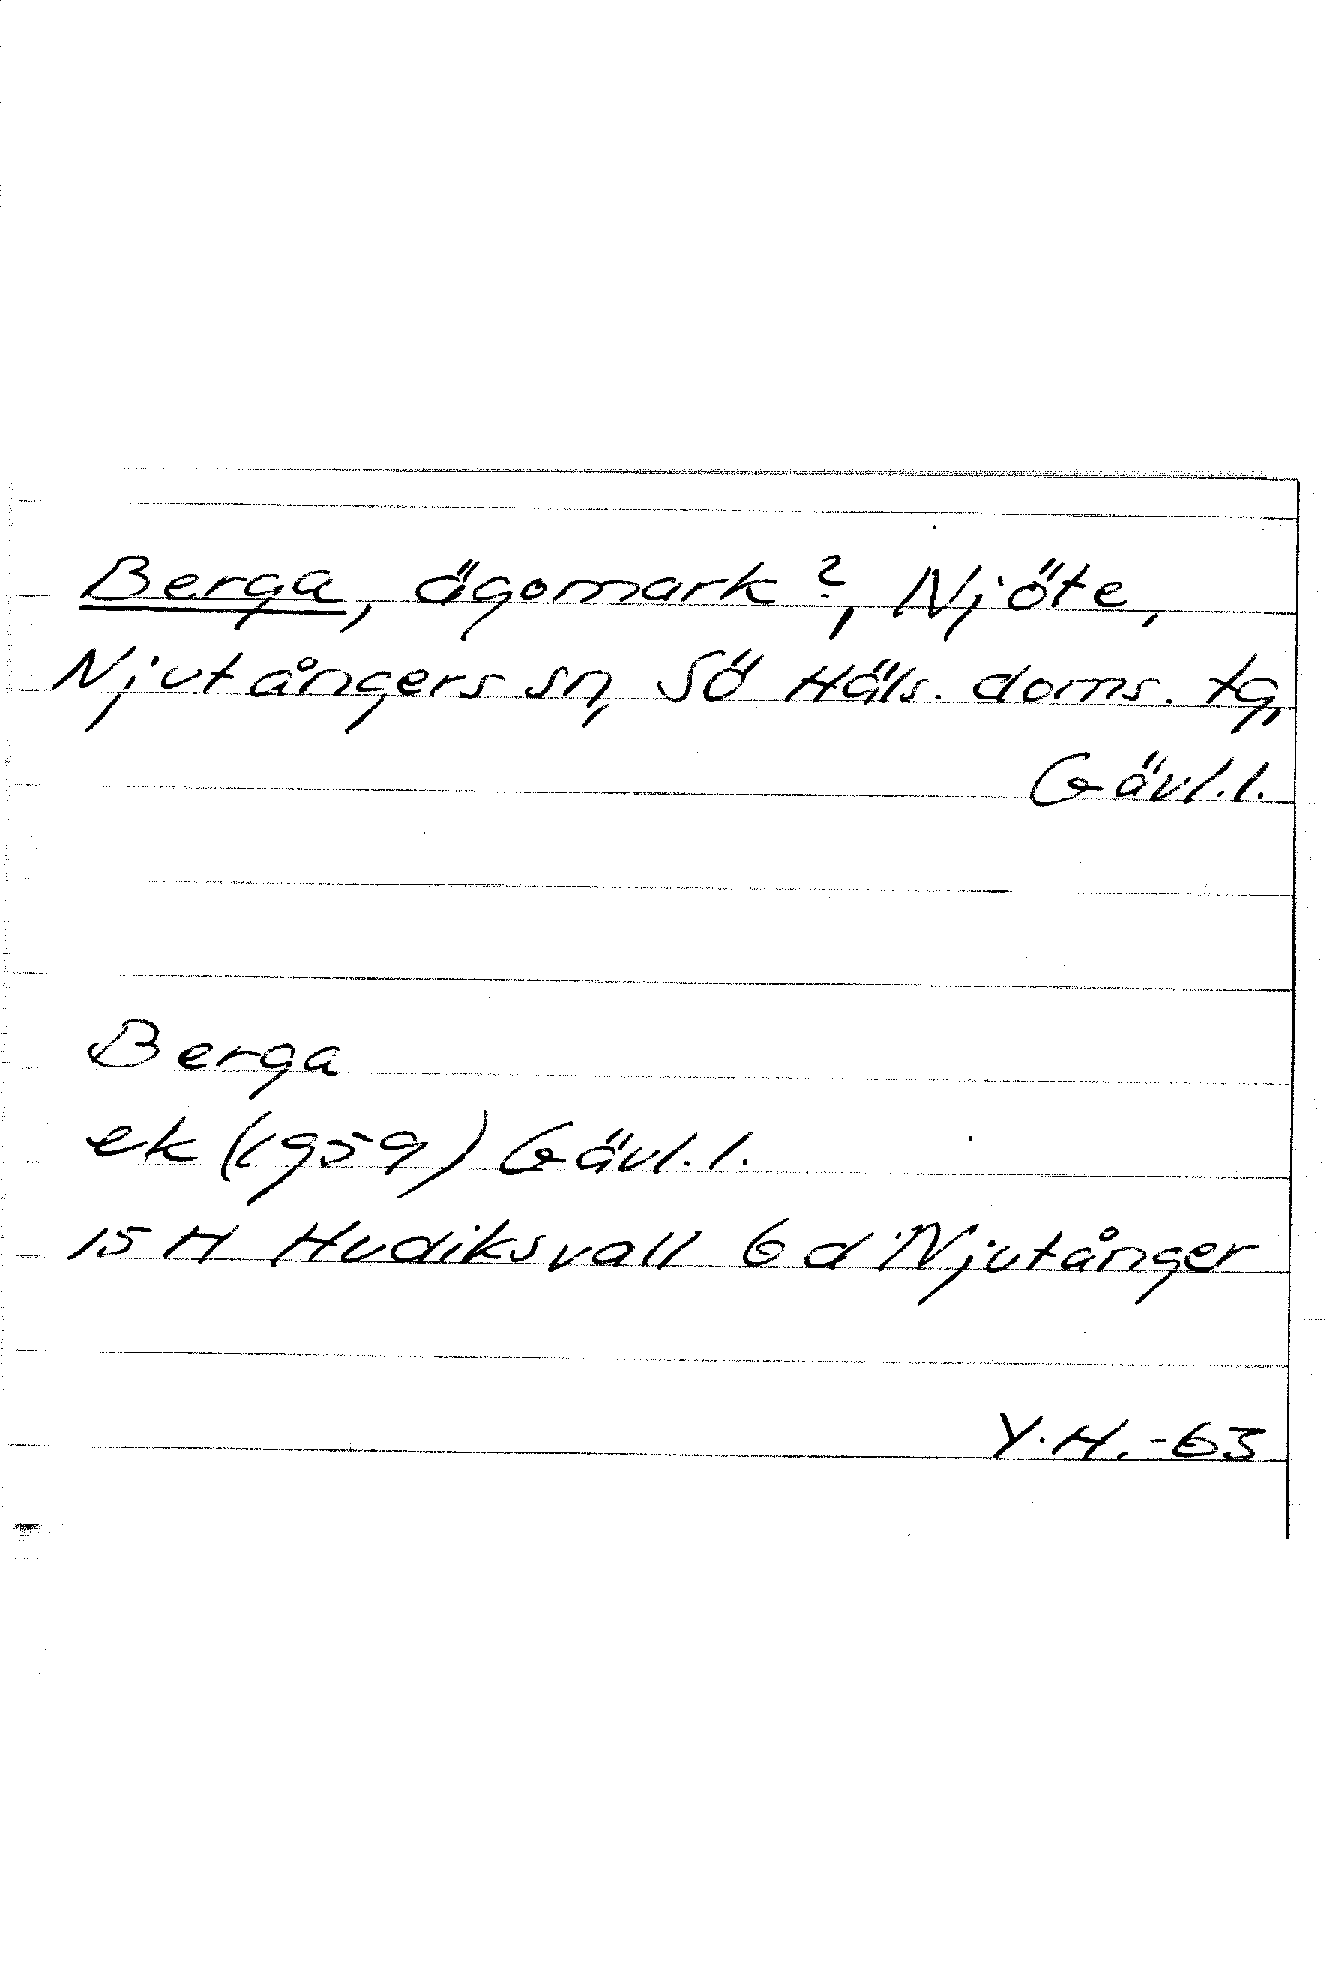 Berga, ägomark?, Njöte,
Njutångers sn, Sö Häls. doms. tg,
Gävl.l.
Berga
ek (1959) Gävl.l.
15 H Hudiksvall 6 d Njutånger
Y.H.-63